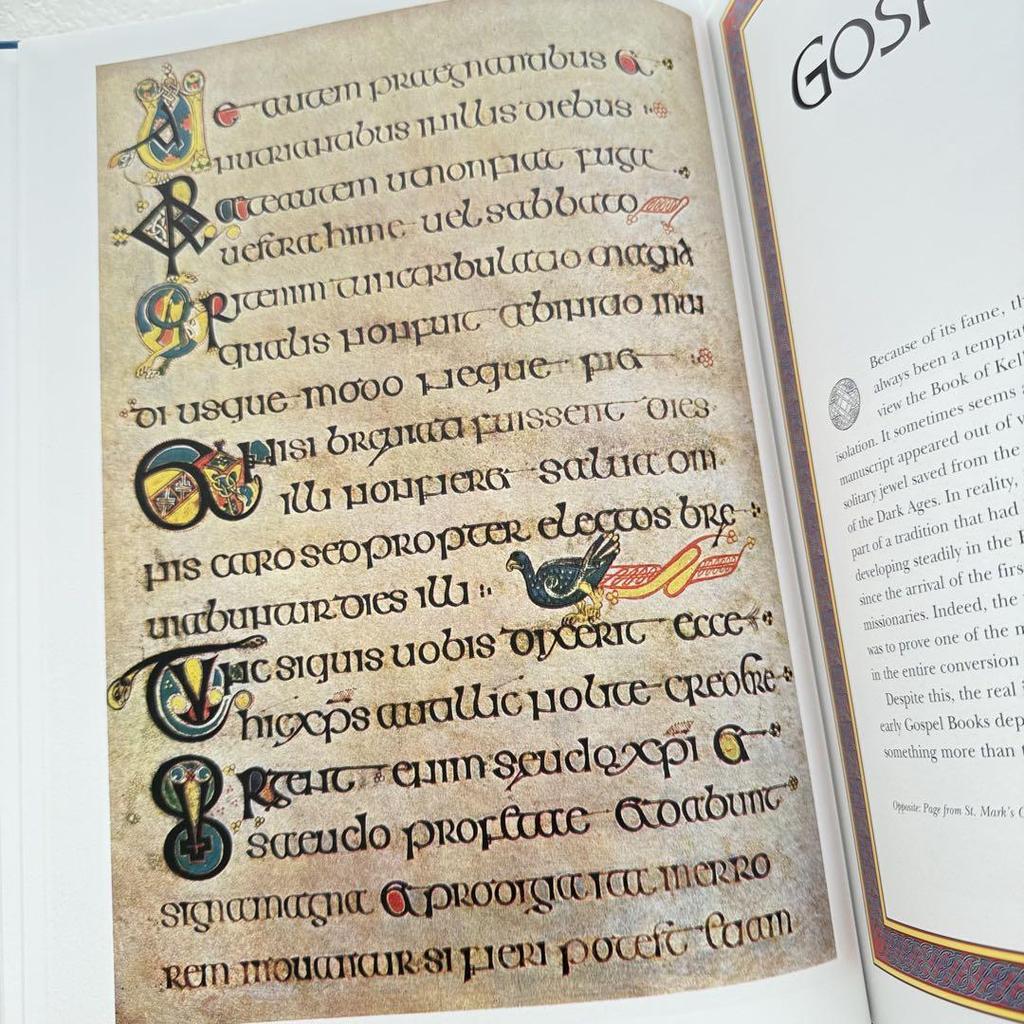 Uae autem praegnantibus et
nutrientibus in illis diebus
Orate autem ut non fiat fuga
uestra hieme uel sabbato
Erit enim tunc tribulatio magna
qualis non fuit ab initio mun
di usque modo neque fiet
Et nisi breuiati fuissent dies
illi non fieret salua om
nis caro sed propter electos bre
uiabuntur dies illi
Tunc si quis uobis dixerit ecce
hic xps aut illic nolite credere
surgent enim seudo xpi et
seudo profetae et dabunt
signa magna et prodigia ita ut in erro
rem moueantur si fieri potest etiam
GOSP
Because of its fame, th
always been a tempta
view the Book of Kel
isolation. It sometimes seems
manuscript appeared out of
solitary jewel saved from the
of the Dark Ages. In reality,
part of a tradition that had
developing steadily in the
since the arrival of the firs
missionaries. Indeed, the
was to prove one of the
in the entire conversion
Despite this, the real
early Gospel Books dep
something more than
Opposite: Page from St. Mark's